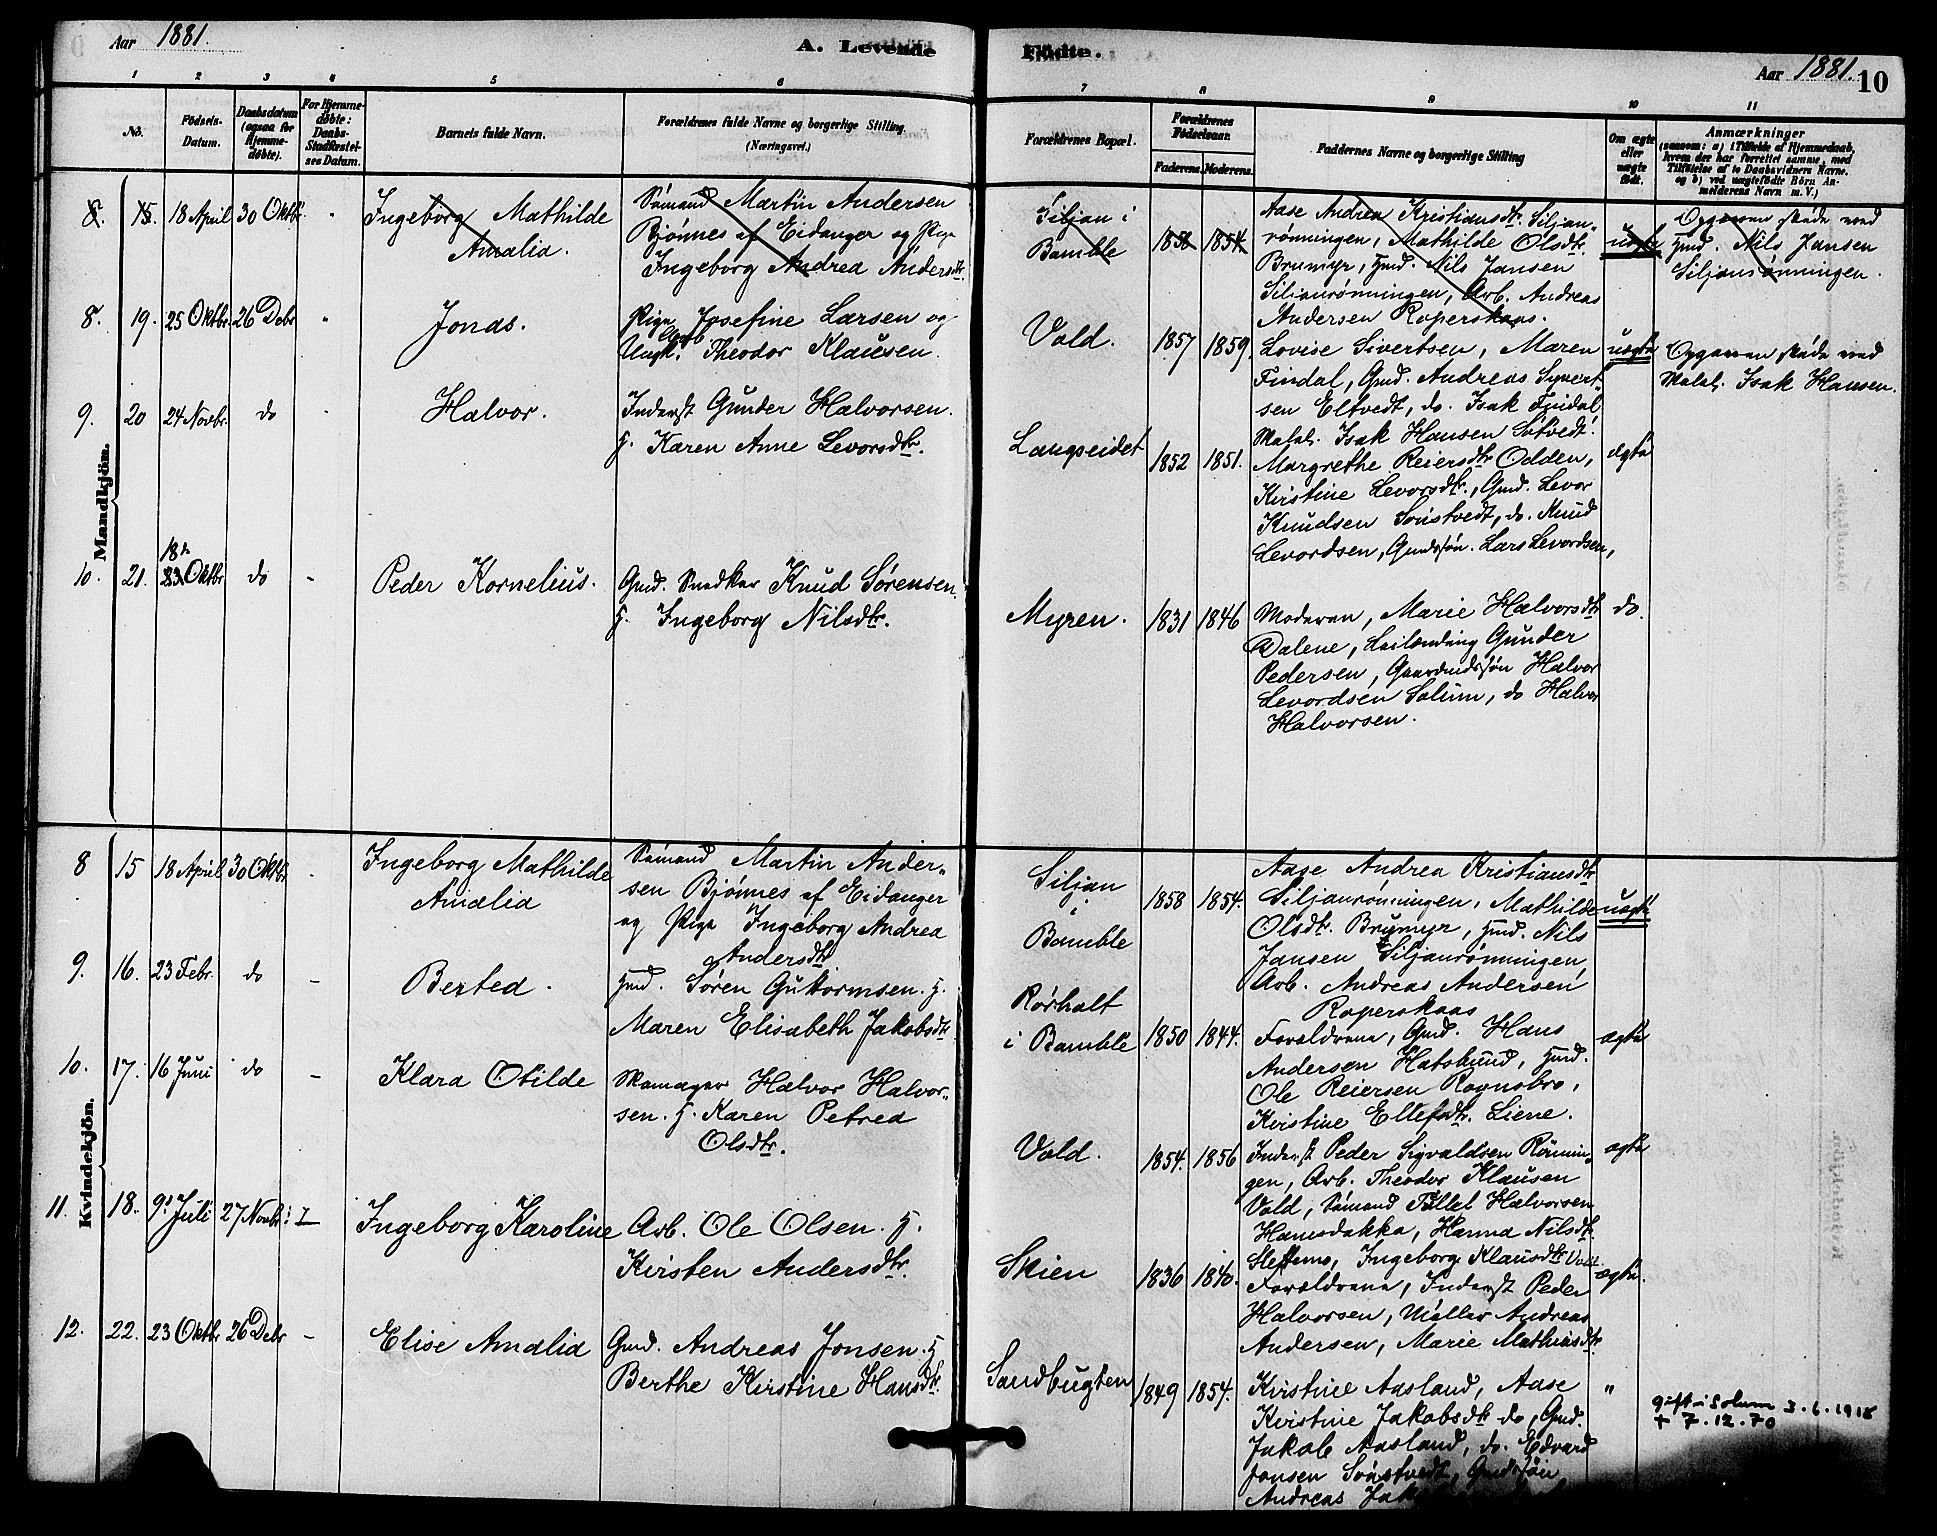 Aar 1881.
A. Levende Födte.
Aar 1881. 10
1 2 3 4 5 6 7 8 9 10 11
No.
Födsels-
Datum.
Daabsdatum
(ogsaa for
Hjemme-
døbte).
For Hjemme-
døbte:
Daabs-
Stadfæstel-
ses Datum.
Barnets fulde Navn.
Forældrenes fulde Navne og borgerlige Stilling
(Næringsvei.)
Forældrenes Bopæl.
Forældrenes
Födselsaar.
Faderens. Moderens.
Faddernes Navne og borgerlige Stilling
Om ægte
eller
uægte
født.
Anmærkninger
(saasom: a) i Tilfælde af Hjemmedaab,
hvem der har forrettet samme, med
Tilföielse af to Daabsvidners Navne.
og b) ved uægtefødte Börn An-
melderens Navn m. V.)
Mandkjön.
8. 15. 18 April 30 Oktbr
Ingeborg Mathilde
Amalia.
Sømand Martin Andersen
Bjönnes af Eidanger og Pige
Ingeborg Andrea Andersdtr.
Siljan i
Bamble
1858 1854
Aase Andrea Kristiansdtr. Siljan-
rønningen, Mathilde Olsdtr.
Brumyr, Hmd. Nils Jansen
Siljanrønningen, Arb. Andreas
Andersen Roperskaas.
uægte
Opgaven skede ved
Hmd. Nils Jansen
Siljanrønningen.
8. 19. 25 Oktbr. 26 Debr "
Jonas.
Pige Josefine Larsen og
Ungk. Theodor Klausen.
Vold.
1857 1859.
Lovise Sivertsen, Maren
Findal, Gmd. Andreas Syvert-
sen Eltvedt, do. Isak Findal
Malal. Isak Hansen Sötvedt.
uægte
Opgaven skede ved
Malal. Isak Hansen.
9. 20 24 Novbr. do
Halvor.
Inderst Gunder Halvorsen.
H. Karen Anne Levorsdtr.
Langseidet
1852 1851.
Margrethe Reiersdtr Odden,
Kirstine Levorsdtr., Gmd. Levor
Knudsen Sönstvedt, do. Knud
Levordsen, Gmdssön. Lars Levordsen,
ægte
10. 21. 18de
23 Oktbr do -
Peder Kornelius.
Gmd. Snedker Knud Sørensen.
H. Ingeborg Nilsdtr.
Myren.
1831 1846
Moderen, Marie Halvorsdtr
Dalene, Leilænding Gunder
Pedersen, Gaardmdssøn Halvor
Levordsen Solum, do Halvor
Halvorsen.
do.
Kvindekjön.
8 15 18 April 30 Oktbr
Ingeborg Mathilde
Amalia
Sømand Martin Ander-
sen Bjönnes af Eidanger
og Pige Ingeborg Andrea
Andersdtr
Siljan
i
Bamble
1858 1854.
Aase Andrea Kristiansdtr
Siljanrønningen, Mathilde
Olsdtr. Brumyr, Hmd. Nils
Jansen Siljanrønningen,
Arb. Andreas Andersen
Roperskaas
uægte
9. 16. 23 Febr. do -
Bertea.
Hmd. Søren Guttormsen. H.
Maren Elisabeth Jakobsdtr
Rørholt
i Bamble
1850 1844.
Forældrene, Gmd. Hans
Andersen Hatslund, Hmd.
Ole Reiersen Rognsbro,
Kirstine Ellefsdtr. Liene.
ægte
10. 17. 16 Juni do -
Klara Otilde
Skomager Halvor Halvor-
sen. H. Karen Petrea
Olsdtr.
Vold.
1854. 1856
Inderst Peder Sigvaldsen Rønnin-
gen, Arb. Theodor Klausen
Vold, Sømand Tellef Halvorsen
Hansdakka, Hanna Nilsdtr.
Slettemo, Ingeborg Klausdtr Vold
ægte
11. 18. 9 Juli 27 Novbr.
Ingeborg Karoline
Arb. Ole Olsen. H.
Kirsten Andersdtr.
Skien
1836 1840.
Forældrene, Inderst Peder
Halvorsen, Møller Andreas
Andersen, Marie Mathiasdtr.
ægte.
12. 22. 23 Oktbr 26 Debr -
Elise Amalia
Gmd. Andreas Jonsen. H
Berthe Kirstine Hansdtr.
Sandbugten
1849 1854.
Kirstine Aasland, Aase
Kirstine Jakobsdtr do, Gmd.
Jakob Aasland, do. Edvard
Jonsen Sönstvedt, Gmdssøn
Andreas
"
gift i Solum 3.6.1918
+ 7.12.70